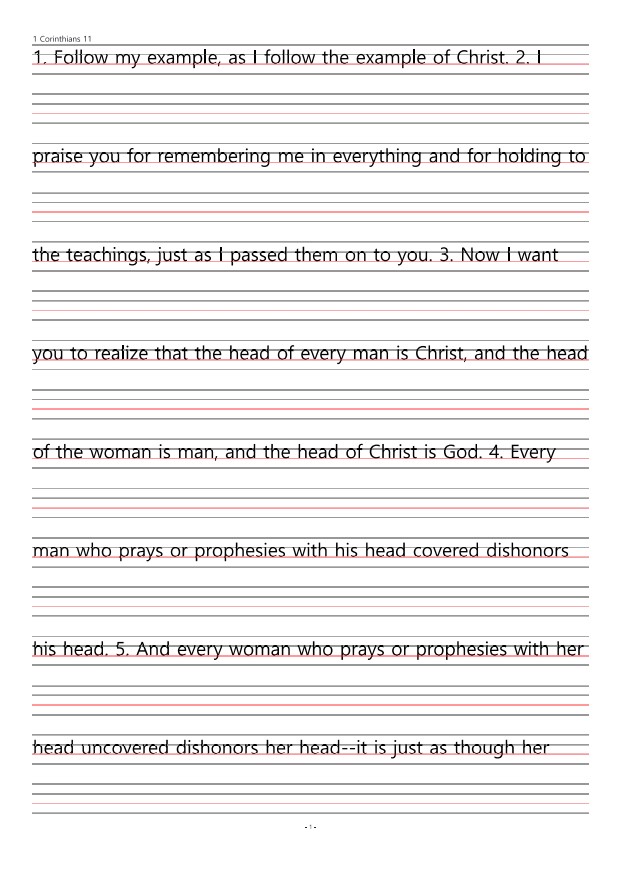 1 Corinthians 11
1. Follow my example, as I follow the example of Christ. 2. I
praise you for remembering me in everything and for holding to
the teachings, just as I passed them on to you. 3. Now I want
you to realize that the head of every man is Christ, and the head
of the woman is man, and the head of Christ is God. 4. Every
man who prays or prophesies with his head covered dishonors
his head. 5. And every woman who prays or prophesies with her
head uncovered dishonors her head--it is just as though her
- 1 -